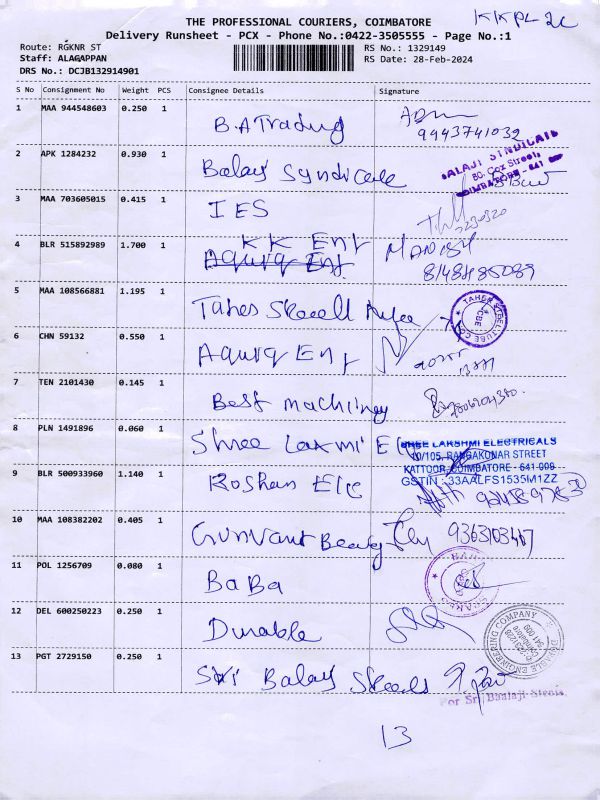 THE PROFESSIONAL COURIERS, COIMBATORE
KKPL 2C
Delivery Runsheet - PCX - Phone No.:0422-3505555 - Page No.:1
Route: RGKNR ST
RS No.: 1329149
Staff: ALAGAPPAN
RS Date: 28-Feb-2024
DRS No.: DCJB132914901
S No Consignment No Weight PCS Consignee Details Signature
1 MAA 944548603 0.250 1 B.A Trading
9943741032
2 APK 1284232 0.930 1 Balaji Syndicate
BALAJI SYNDICATE
80, Cox Street,
COIMBATORE - 641
3 MAA 703605015 0.415 1 IES
4 BLR 515892989 1.700 1 KK Ent MANISH
8148485089
5 MAA 108566881 1.195 1 Taher Steell
TAHER STEEL TUBE CO CBE
6 CHN 59132 0.550 1 Aquiq Ent
7 TEN 2101430 0.145 1 Best machiney
8 PLN 1491896 0.060 1 Shree Laxmi E
SHREE LAKSHMI ELECTRICALS
10/105, RANGAKONAR STREET
KATTOOR, COIMBATORE - 641 009
GSTIN : 33AALFS1535M1ZZ
9 BLR 500933960 1.140 1 Roshan Ele
10 MAA 108382202 0.405 1 Gunvant Beauty 9363103467
11 POL 1256709 0.080 1 BaBa
12 DEL 600250223 0.250 1 Durable
DURABLE ENGINEERING COMPANY
Coimbatore
641 009
13 PGT 2729150 0.250 1 Sri Balaji Steels
For Sri Baalaji Steels
13